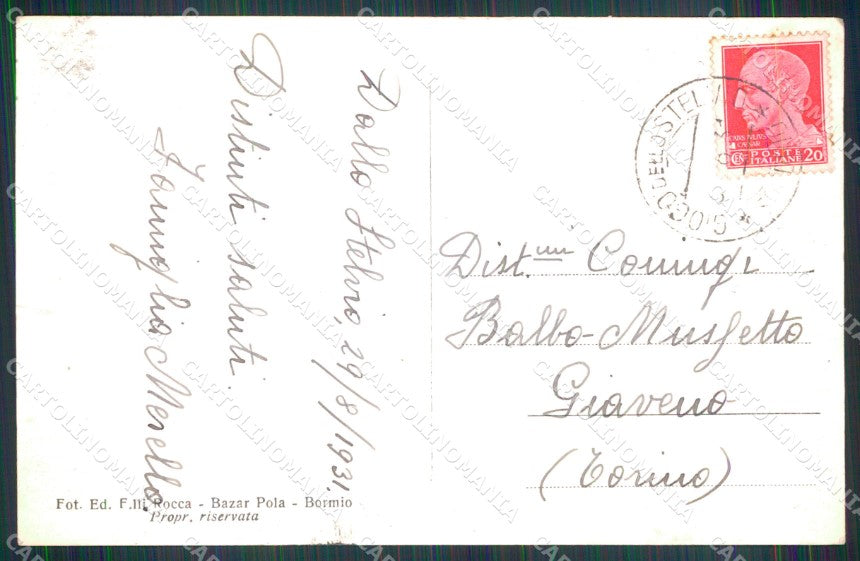 Dallo Stelvio, 29/8/1931.
Distinti saluti.
Famiglia Merello
Dist.mi Coniugi
Balbo-Mussetto
Giaveno
(Torino)
Fot. Ed. F.lli Rocca - Bazar Pola - Bormio
Propr. riservata
CAIVS IVLIVS
CAESAR
CEN. POSTE
ITALIANE 20
GIOGO DELLO STELVIO
CARTOLINOMANIA